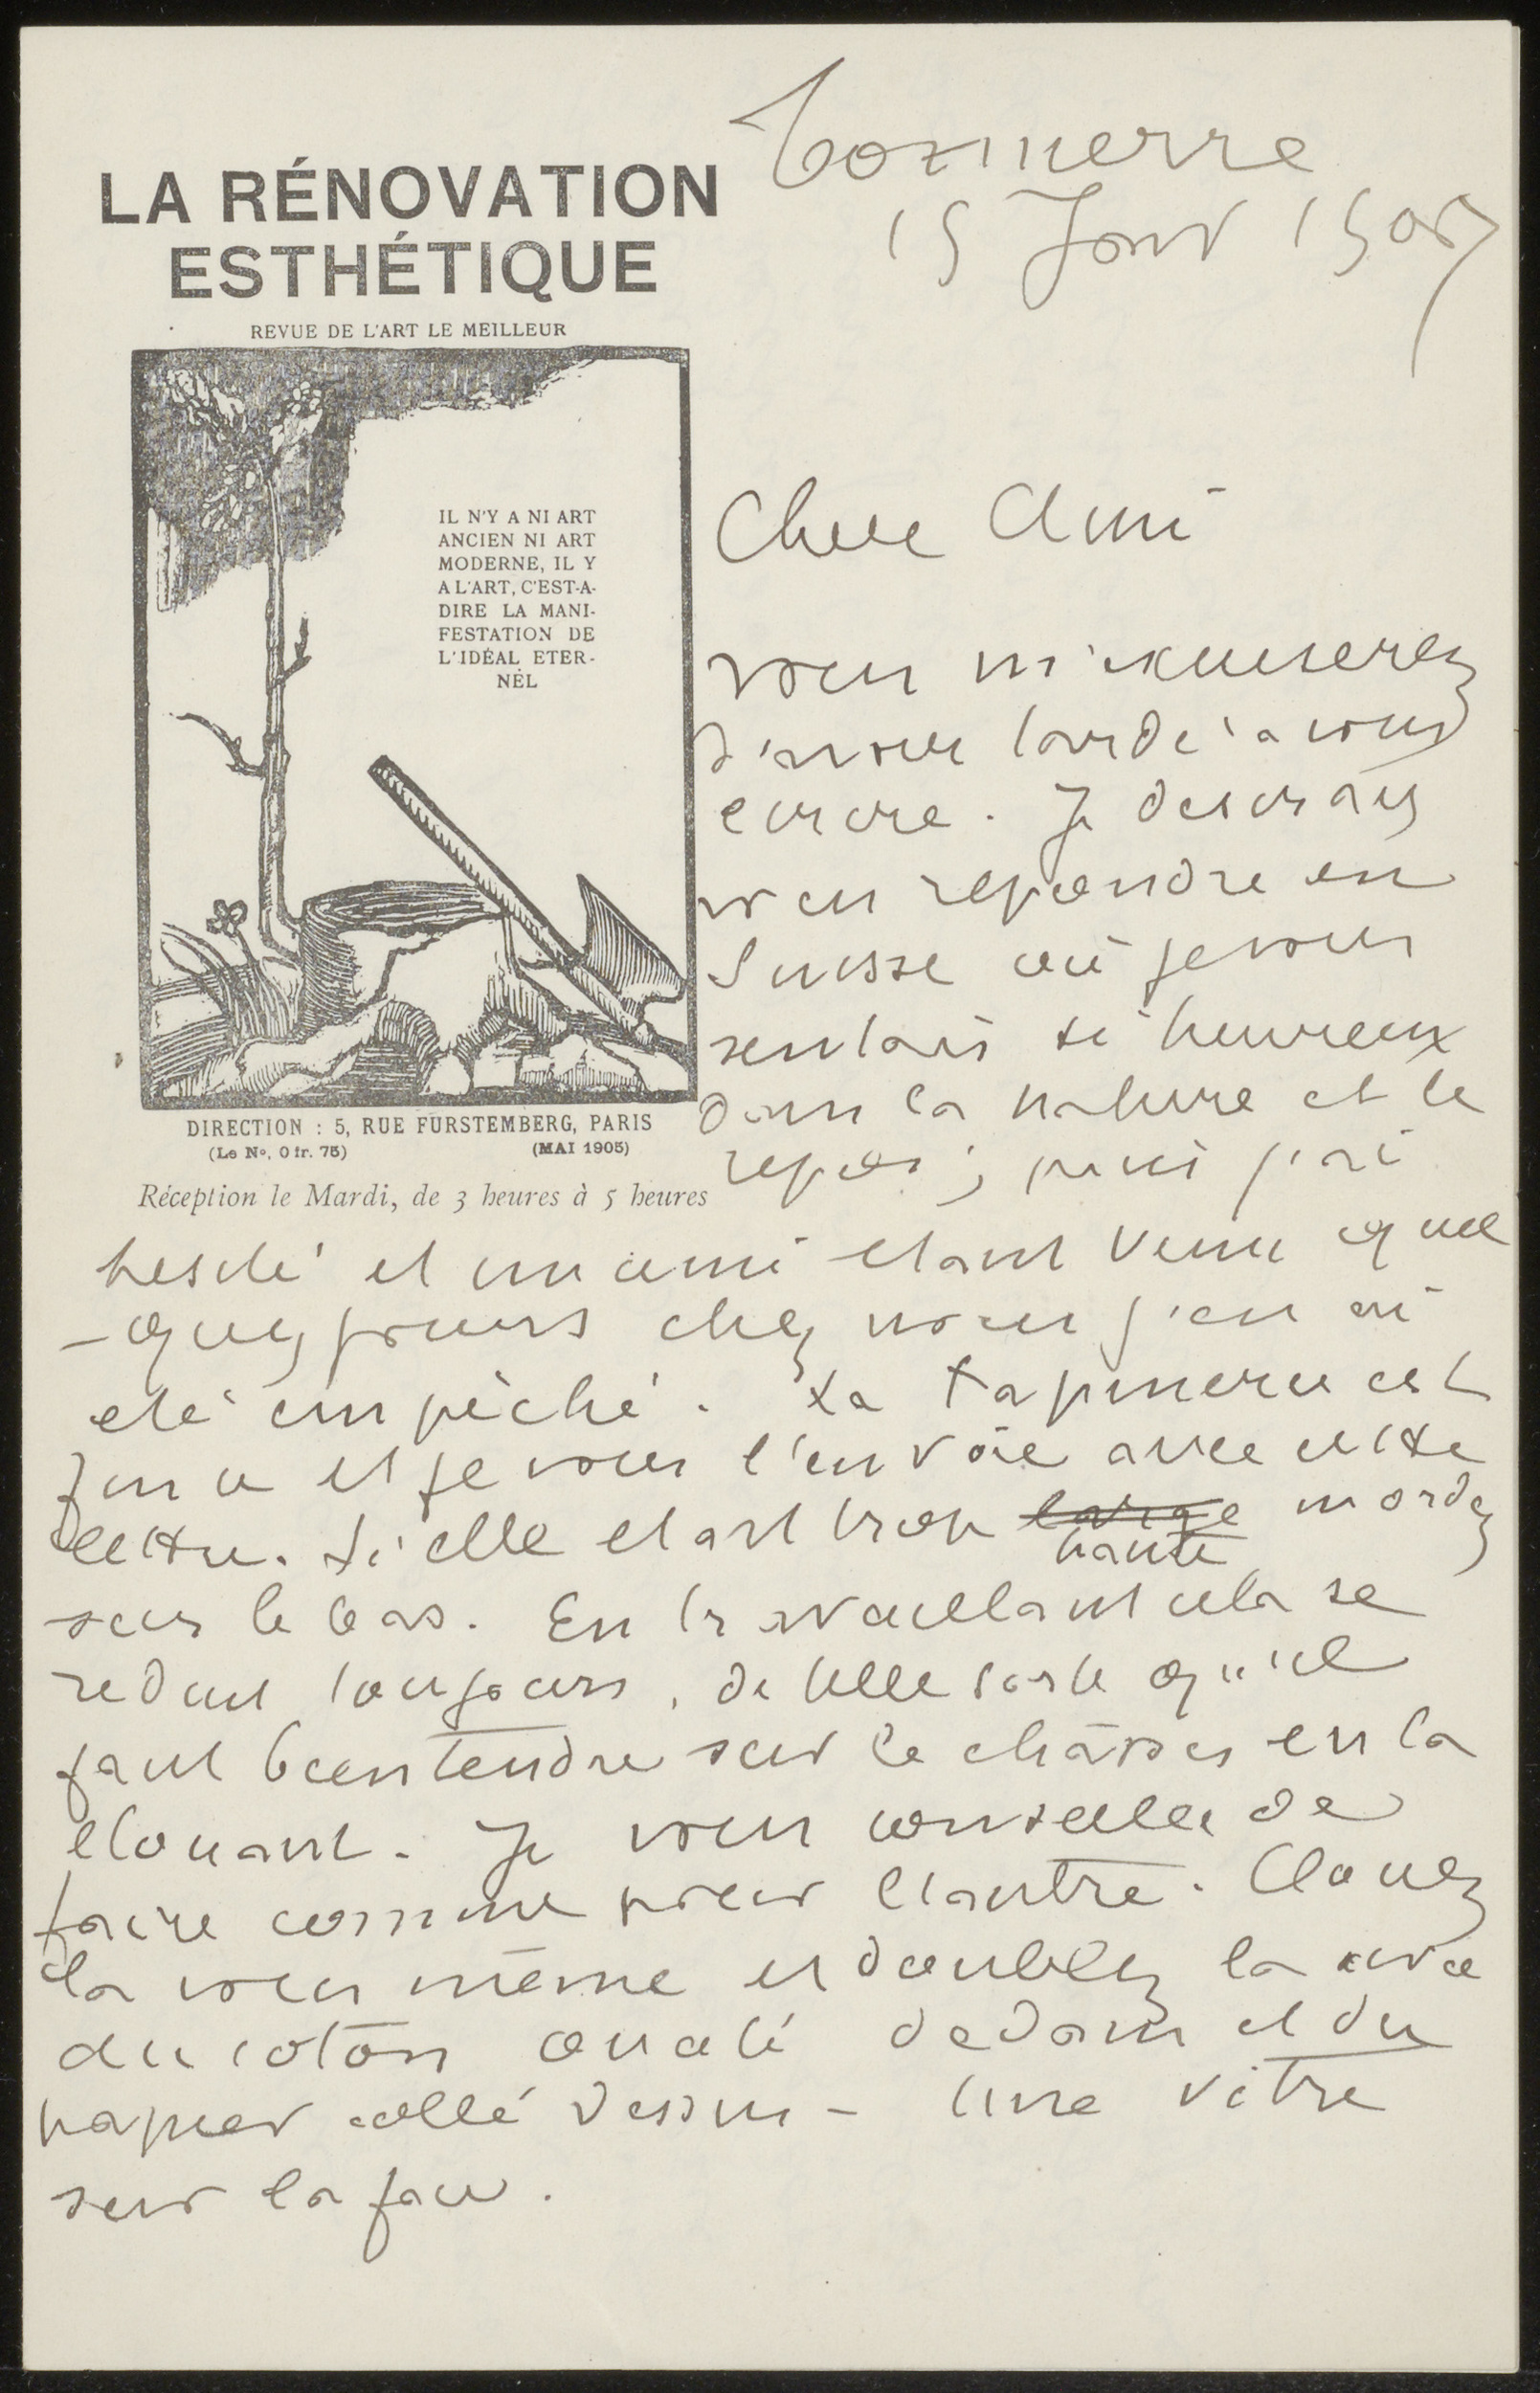 LA RÉNOVATION
ESTHÉTIQUE
REVUE DE L'ART LE MEILLEUR
IL N'Y A NI ART
ANCIEN NI ART
MODERNE, IL Y
A L'ART, C'EST-A-
DIRE LA MANI-
FESTATION DE
L'IDÉAL ETER-
NEL
DIRECTION : 5, RUE FURSTEMBERG, PARIS
(Le No, 0 fr. 75) (MAI 1905)
Réception le Mardi, de 3 heures à 5 heures
Tonnerre
15 1907
Cher Ami
vous m'excuserez
d'avoir tardé à vous
ecrire. Je desirais
vous repondre en
Suisse où je vous
sentais si heureux
dans la nature et le
repos ; puis j'ai
hesité et un ami etant venu quel
-ques jours chez nous j'en ai
eté empêché. La tapisserie est
finie et je vous l'envoie avec cette
lettre. Si elle etait trop large haute mordez
sur le bas. En travaillant cela se
reduit toujours, de telle sorte qu'il
faut bien tendre sur le châssis en la
clouant. Je vous conseille de
faire comme pour l'autre. Clouez
la vous même et doublez la avec
du coton ouaté dedans et du
papier collé dessus - Une vitre
sur la face.